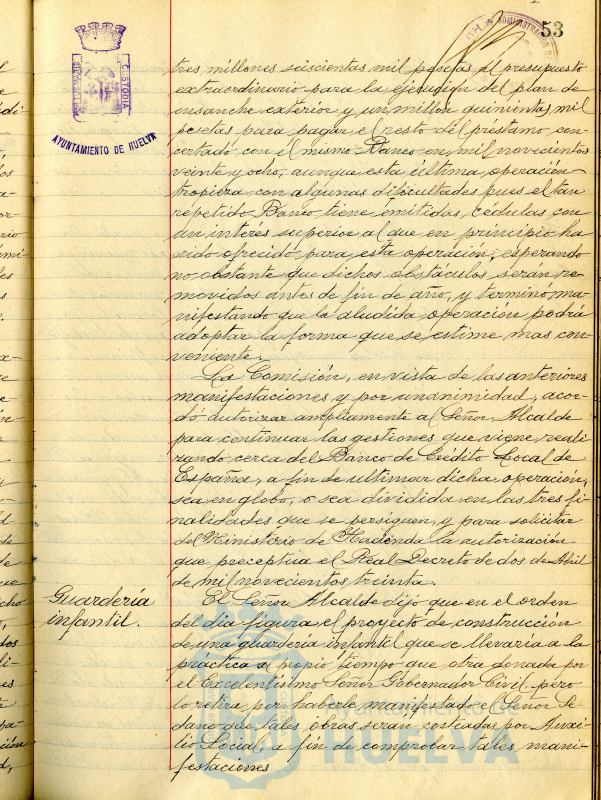 53
ADMINISTRACIÓN
CUSTODIA
AYUNTAMIENTO DE HUELVA
tres millones seiscientas mil pesetas al presupuesto
extraordinario para la ejecución del plan de
ensanche exterior y un millon quinientas mil
pesetas para pagar el resto del préstamo con-
certado con el mismo Banco en mil novecientos
veinte y ocho, aunque esta última operación
tropieza con algunas dificultades pues el tan
repetido Banco tiene emitidas cédulas con
un interés superior al que en principio ha
sido ofrecido para esta operación, esperando
no obstante que dichos obstáculos serán re-
movidos antes de fin de año, y terminó ma-
nifestando que la aludida operación podrá
adoptar la forma que se estime mas con-
veniente.
La Comisión, en vista de las anteriores
manifestaciones y por unanimidad, acor-
dó autorizar ampliamente al Señor Alcalde
para continuar las gestiones que viene reali-
zando cerca del Banco de Crédito Local de
España, a fin de ultimar dicha operación,
sea en globo, o sea dividida en las tres fi-
nalidades que se persiguen, y para solicitar
del Ministerio de Hacienda la autorización
que preceptua el Real Decreto de dos de Abril
de mil novecientos treinta.
Guardería
infantil.
El Señor Alcalde dijo que en el orden
del dia figura el proyecto de construcción
de una guardería infantil que se llevaría a la
práctica al propio tiempo que otra donada por
el Excelentísimo Señor Gobernador Civil, pero
lo retira por haberle manifestado el Señor Se-
dano que tales obras seran enviadas por Auxi-
lio Social, a fin de comprobar tales mani-
festaciones
HUELVA